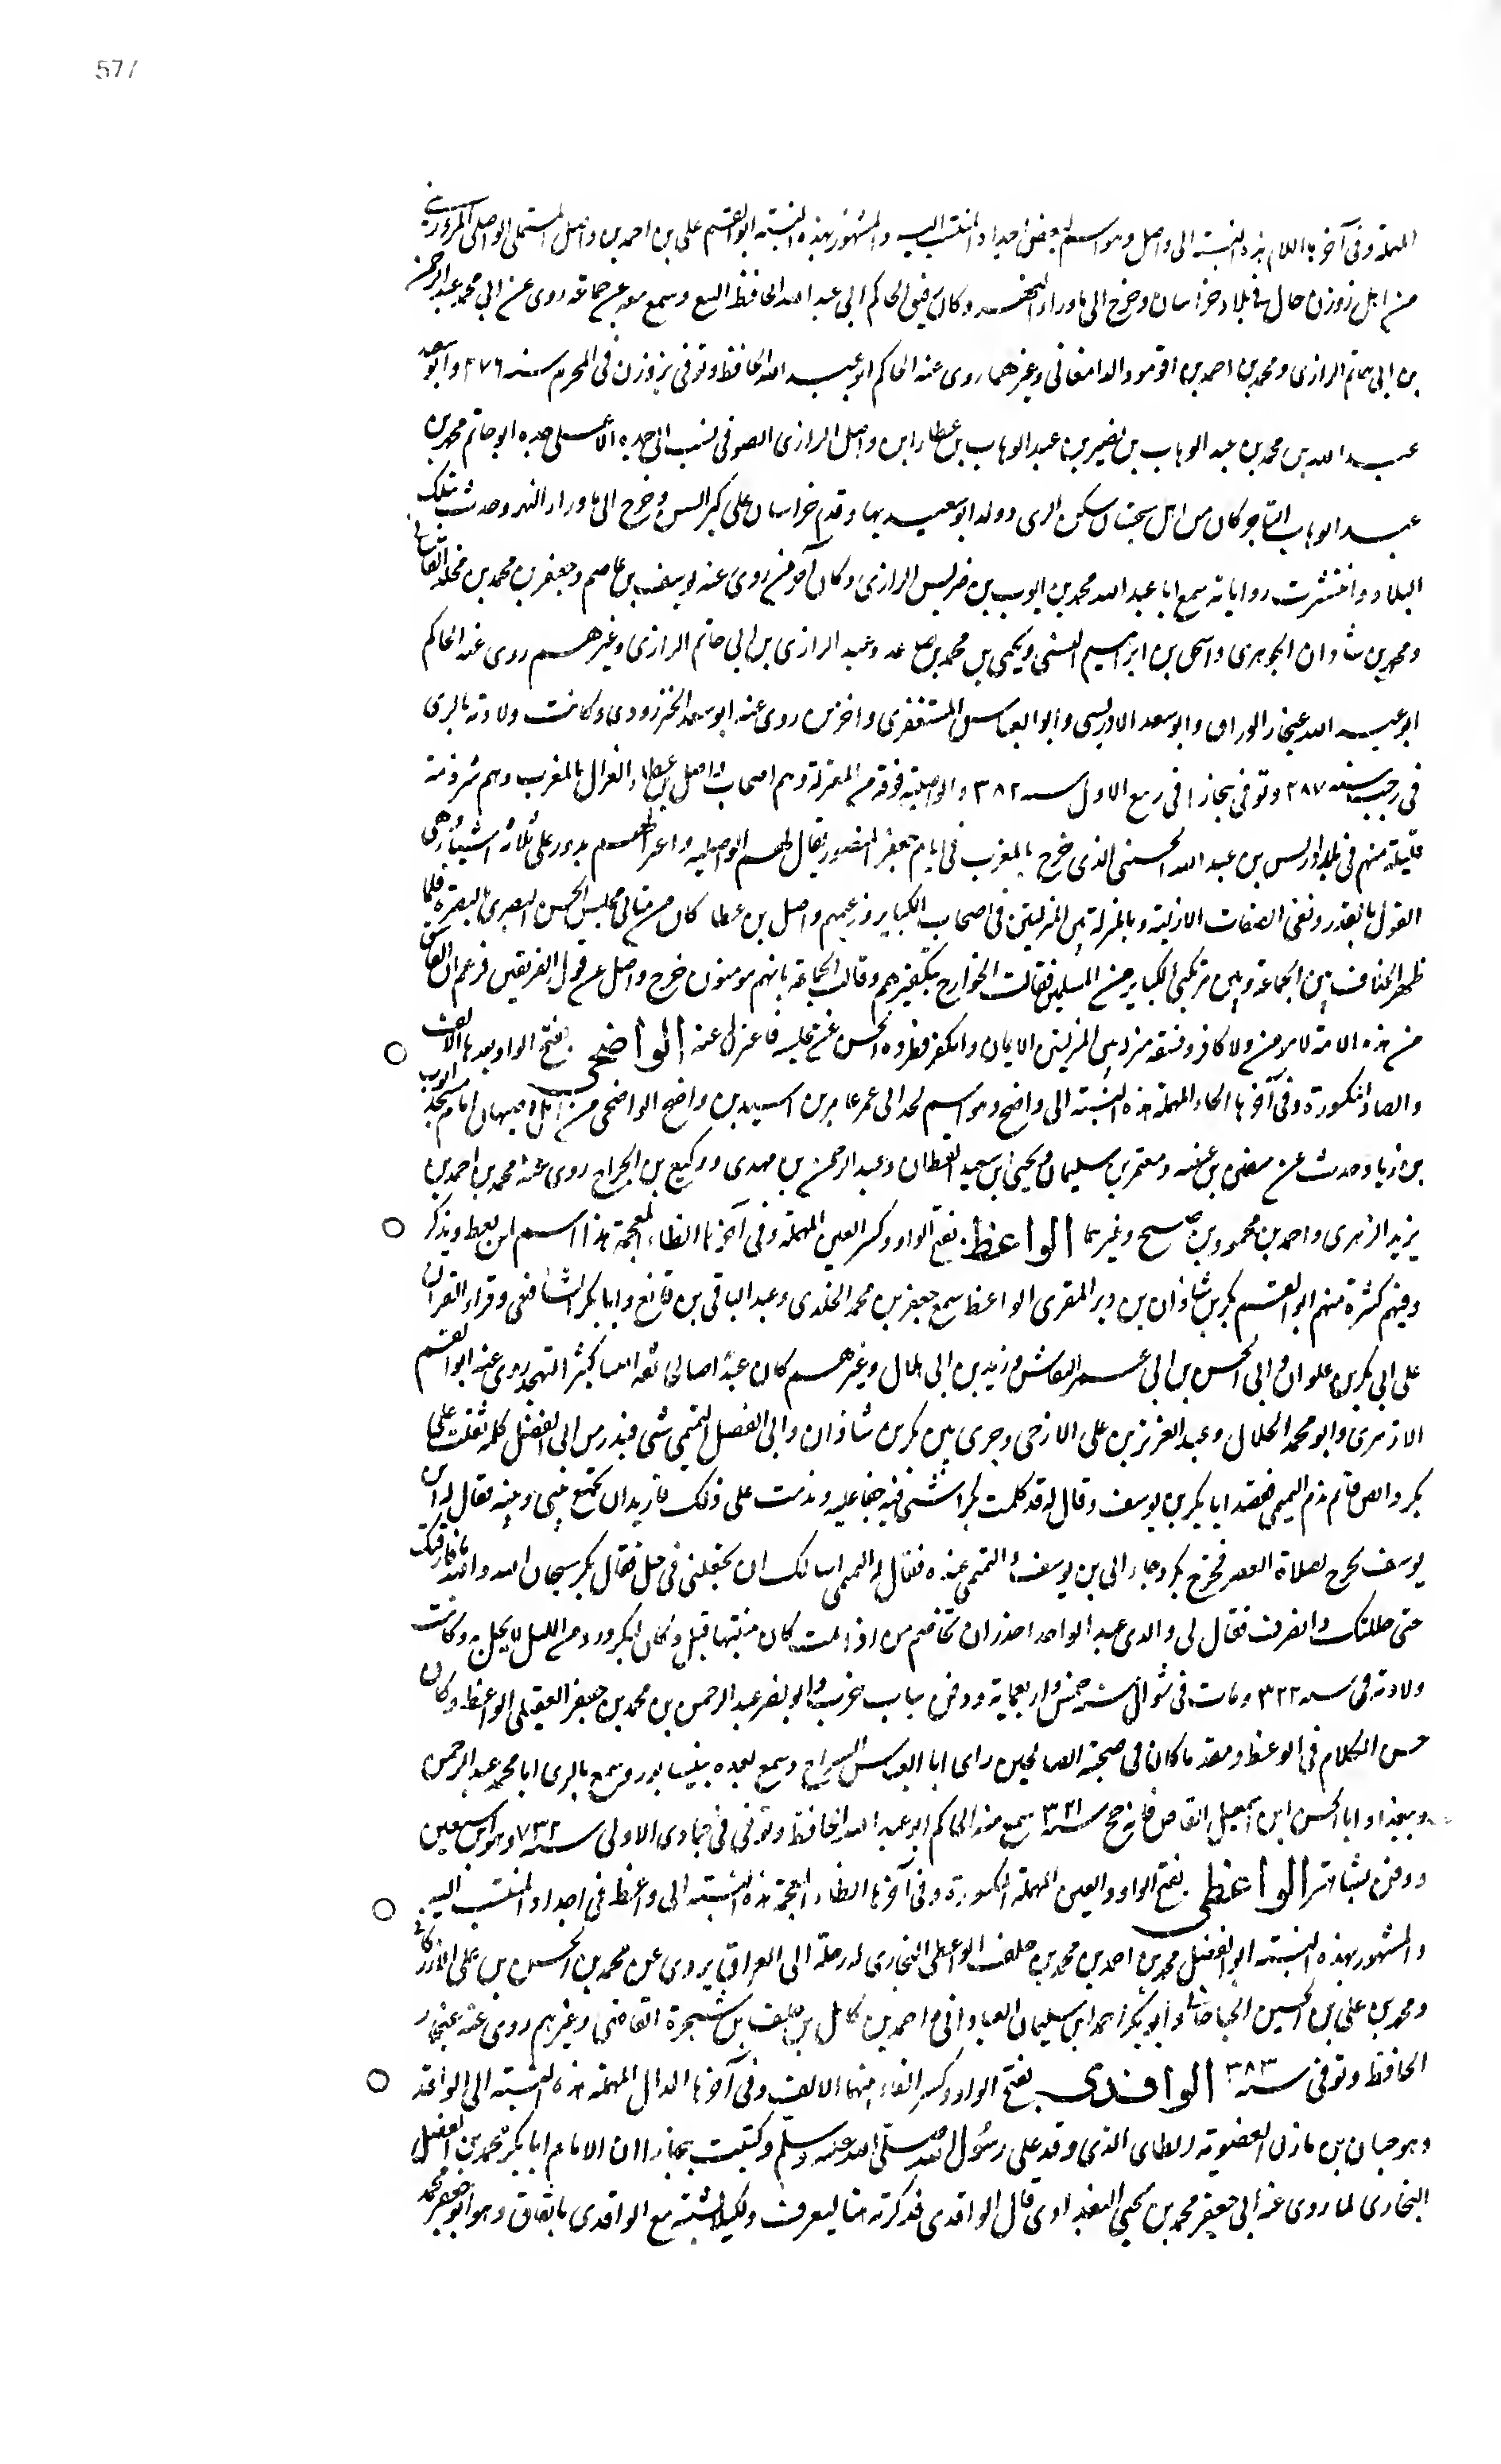 577
المهملة وفى آخرها اللام هذه النسبة الى واصل وهو اسم لبعض اجداد المنتسب اليه والمشهور بهذه النسبة ابو القسم على بن احمد بن واصل المستملى الواصلى الزوزنى
من اهل زوزن جال فى بلاد خراسان وخرج الى ماوراء النهر وكان رفيق الحاكم ابى عبد الله الحافظ البيع وسمع معه عن جماعة روى عن ابى محمد عبد الرحمن
بن ابى حاتم الرازى ومحمد بن احمد بن الدامغانى وغيرهما روى عنه الحاكم ابو عبد الله الحافظ وتوفى بزوزن فى المحرم سنه ٣٧٦ وابو سعيد
عبد الله بن محمد بن عبد الوهاب بن نصير بن عبد الوهاب بن عطا ابن واصل الرازى الصوفى نسب الى جده الاعلى جده ابو حاتم محمد بن
عبد الوهاب التاجر كان من اهل سجستان سكن الرى وولد ابو سعيد بها وقدم خراسان على كبر السن وخرج الى ماوراء النهر وحدث بتلك
البلاد وانتشرت رواياته سمع ابا عبد الله محمد بن ايوب بن ضريس الرازى وكان آخر من روى عنه ويوسف بن عاصم وجعفر بن محمد بن
ومحمد بن شاذان الجوهرى واسحق بن ابراهيم ويحيى بن محمد بن صاعد وعبد الرازى بن ابى حاتم الرازى وغيرهم روى عنه الحاكم
ابو عبد الله غنجار الوراق وابو سعد الادريسى وابو العباس المستغفرى واخر من روى عنه ابو سعد الكنجرودى وكانت ولادته بالرى
فى رجب سنه ٢٨٧ وتوفى ببخارا فى ربيع الاول سنه ٣٨٢ والواصلية فرقة من المعتزلة وهم اصحاب واصل بن عطاء الغزال بالمغرب وهم شرذمة
قليلة منهم فى بلد ادريس بن عبد الله الحسنى الذى خرج بالمغرب فى ايام جعفر المنصور يقال لهم الواصلية واعتزالهم يدور على ثلاثة اشياء هى
القول بالقدر ونفى الصفات الازلية وبالمنزلة بين المنزلتين فى اصحاب الكباير وزعيمهم واصل بن عطا كان من منتابى مجلس الحسن البصرى بالبصرة فلما
ظهر الخلاف بين الجماعة وبين مرتكبى الكباير من المسلمين فقالت الخوارج بتكفيرهم وقالت الجماعة بانهم مومنون خرج واصل عن قول الفريقين فزعم ان الفاسق
من هذه الامة لا مومن ولا كافر وفسقه منزلة بين المنزلتين الايمان والكفر فطرده الحسن عن مجلسه فاعتزل عنه الواضحى بفتح الواو بعدها الالف
والضاد المكسورة وفى آخرها الحاء المهملة هذه النسبة الى واضح وهو اسم لجد ابى عمر عامر بن اسيد بن واضح الواضحى من اهل اصبهان امام مسجد ايوب
بن زياد حدث عن سفين بن عيينه ومعتمر بن سليمان ويحيى بن سعيد القطان وعبد الرحمن بن مهدى ووكيع بن الجراح روى عنه محمد بن احمد بن
يزيد الزهرى واحمد بن محمود بن صبيح وغيرهما الواعظ بفتح الواو وكسر العين المهملة وفى آخرها الظاء المعجمة هذا اسم لمن يعظ ويذكر
وفيهم كثرة منهم ابو القسم بكر بن شاذان بن بكر المقرى الواعظ سمع جعفر بن محمد الخلدى وعبد الباقى بن قانع وابا بكر الشافعى وقرا القرآن
على ابى بكر بن علوان وابى الحسن بن ابى عمر النقاش وزيد بن ابى بلال وغيرهم كان عبدا صالحا ثقه امينا كثير التهجد روى عنه ابو القسم
الازهرى وابو محمد الخلال وعبد العزيز بن على الازجى وجرى بين بكر بن شاذان وابى الفضل التميمى شى فبدر من ابى الفضل كلمة ثقلت على
بكر وانصرفا ثم ندم التميمى فقصد ابا بكر بن يوسف وقال له قد كلمت بكرا بشى فيه جفا عليه وندمت على ذلك واريد ان تجمع بينى وبينه فقال له ابن
يوسف يخرج لصلاة العصر فخرج بكر وجاء الى بن يوسف والتميمى عنده فقال له التميمى اسالك ان تجعلنى فى حل فقال بكر سبحان الله والله ما فارقتك
حتى حللتك وانصرف فقال لى والدى عبد الواحد احذر ان تخاصم من اذا نمت كان منتبها قيل وكان لبكر ورد من الليل لا يخل به وكانت
ولادته فى سنه ٣٢٢ ومات فى شوال سنه خمس واربعماية ودفن بباب حرب وابو نصر عبد الرحمن بن محمد بن جعفر العقيلى الواعظ وكان
حسن الكلام فى الوعظ ومقدما كان فى صحبة الصالحين راى ابا العباس السراج وسمع بعده بنيسابور وسمع بالرى ابا محمد عبد الرحمن
وببغداد ابا الحسن ابن اسمعيل القاضى فانه حج سنه ٣٢١ سمع منه الحاكم ابو عبد الله الحافظ وتوفى فى جمادى الاولى سنه وهو ابن سبعين
ودفن الواعظى بفتح الواو والعين المهملة المكسورة وفى آخرها الظاء المعجمة هذه النسبة الى واعظ فى اجداد المنتسب اليه
والمشهور بهذه النسبة ابو الفضل محمد بن احمد بن محمد بن خلف الواعظى البخارى له رحلة الى العراق يروى عن محمد بن الحسن بن على
ومحمد بن على بن الحسين وابو بكر احمد ابن سليمان العبادانى واحمد بن كامل بن خلف بن شجرة القاضى وغيرهم روى عنه غنجار
الحافظ وتوفى سنه ٣٨٣ الوافدى بفتح الواو وكسر الفاء بينهما الالف وفى آخرها الدال المهملة هذه النسبة الى الوافد
وهو حيان بن مازن الطاى الذى وفد على رسول الله صلى الله عليه وسلم وكتبت ببخارا ان الامام ابا بكر محمد بن الفضل
البخارى لما روى عن ابى جعفر محمد بن يحيى البغدادى قال الوافدى فذكرته هنا ليعرف ولكيلا يشتبه مع الواقدى باتفاق وهو ابو جعفر محمد